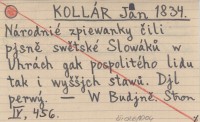 KOLLÁR Ján 1834.
Národnié zpiewanky čili
pjsně swětské Slowáků w
Uhrách gak pospolitého lidu
tak i wyššjch stawů. Djl
perwý. — W Budjně. Stron
IV, 456.